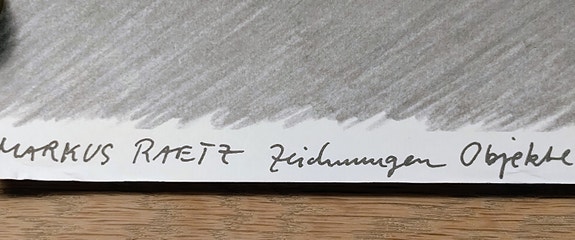 MARKUS RAETZ Zeichnungen Objekte